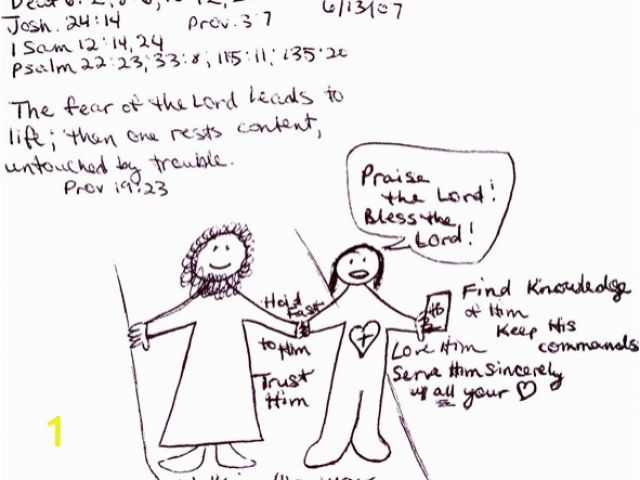 6/13/07
Josh. 24:14 Prov. 3:7
1 Sam 12:14,24
Psalm 22:23; 33:8; 115:11; 135:20
The fear of the Lord leads to
life; then one rests content,
untouched by trouble.
Prov 19:23
Praise
the Lord!
Bless the
Lord!
Hold
Fast
to Him
Trust
Him
Find Knowledge
of Him
Keep His
commands
Love Him
Serve Him sincerely
w/ all your ♡
1